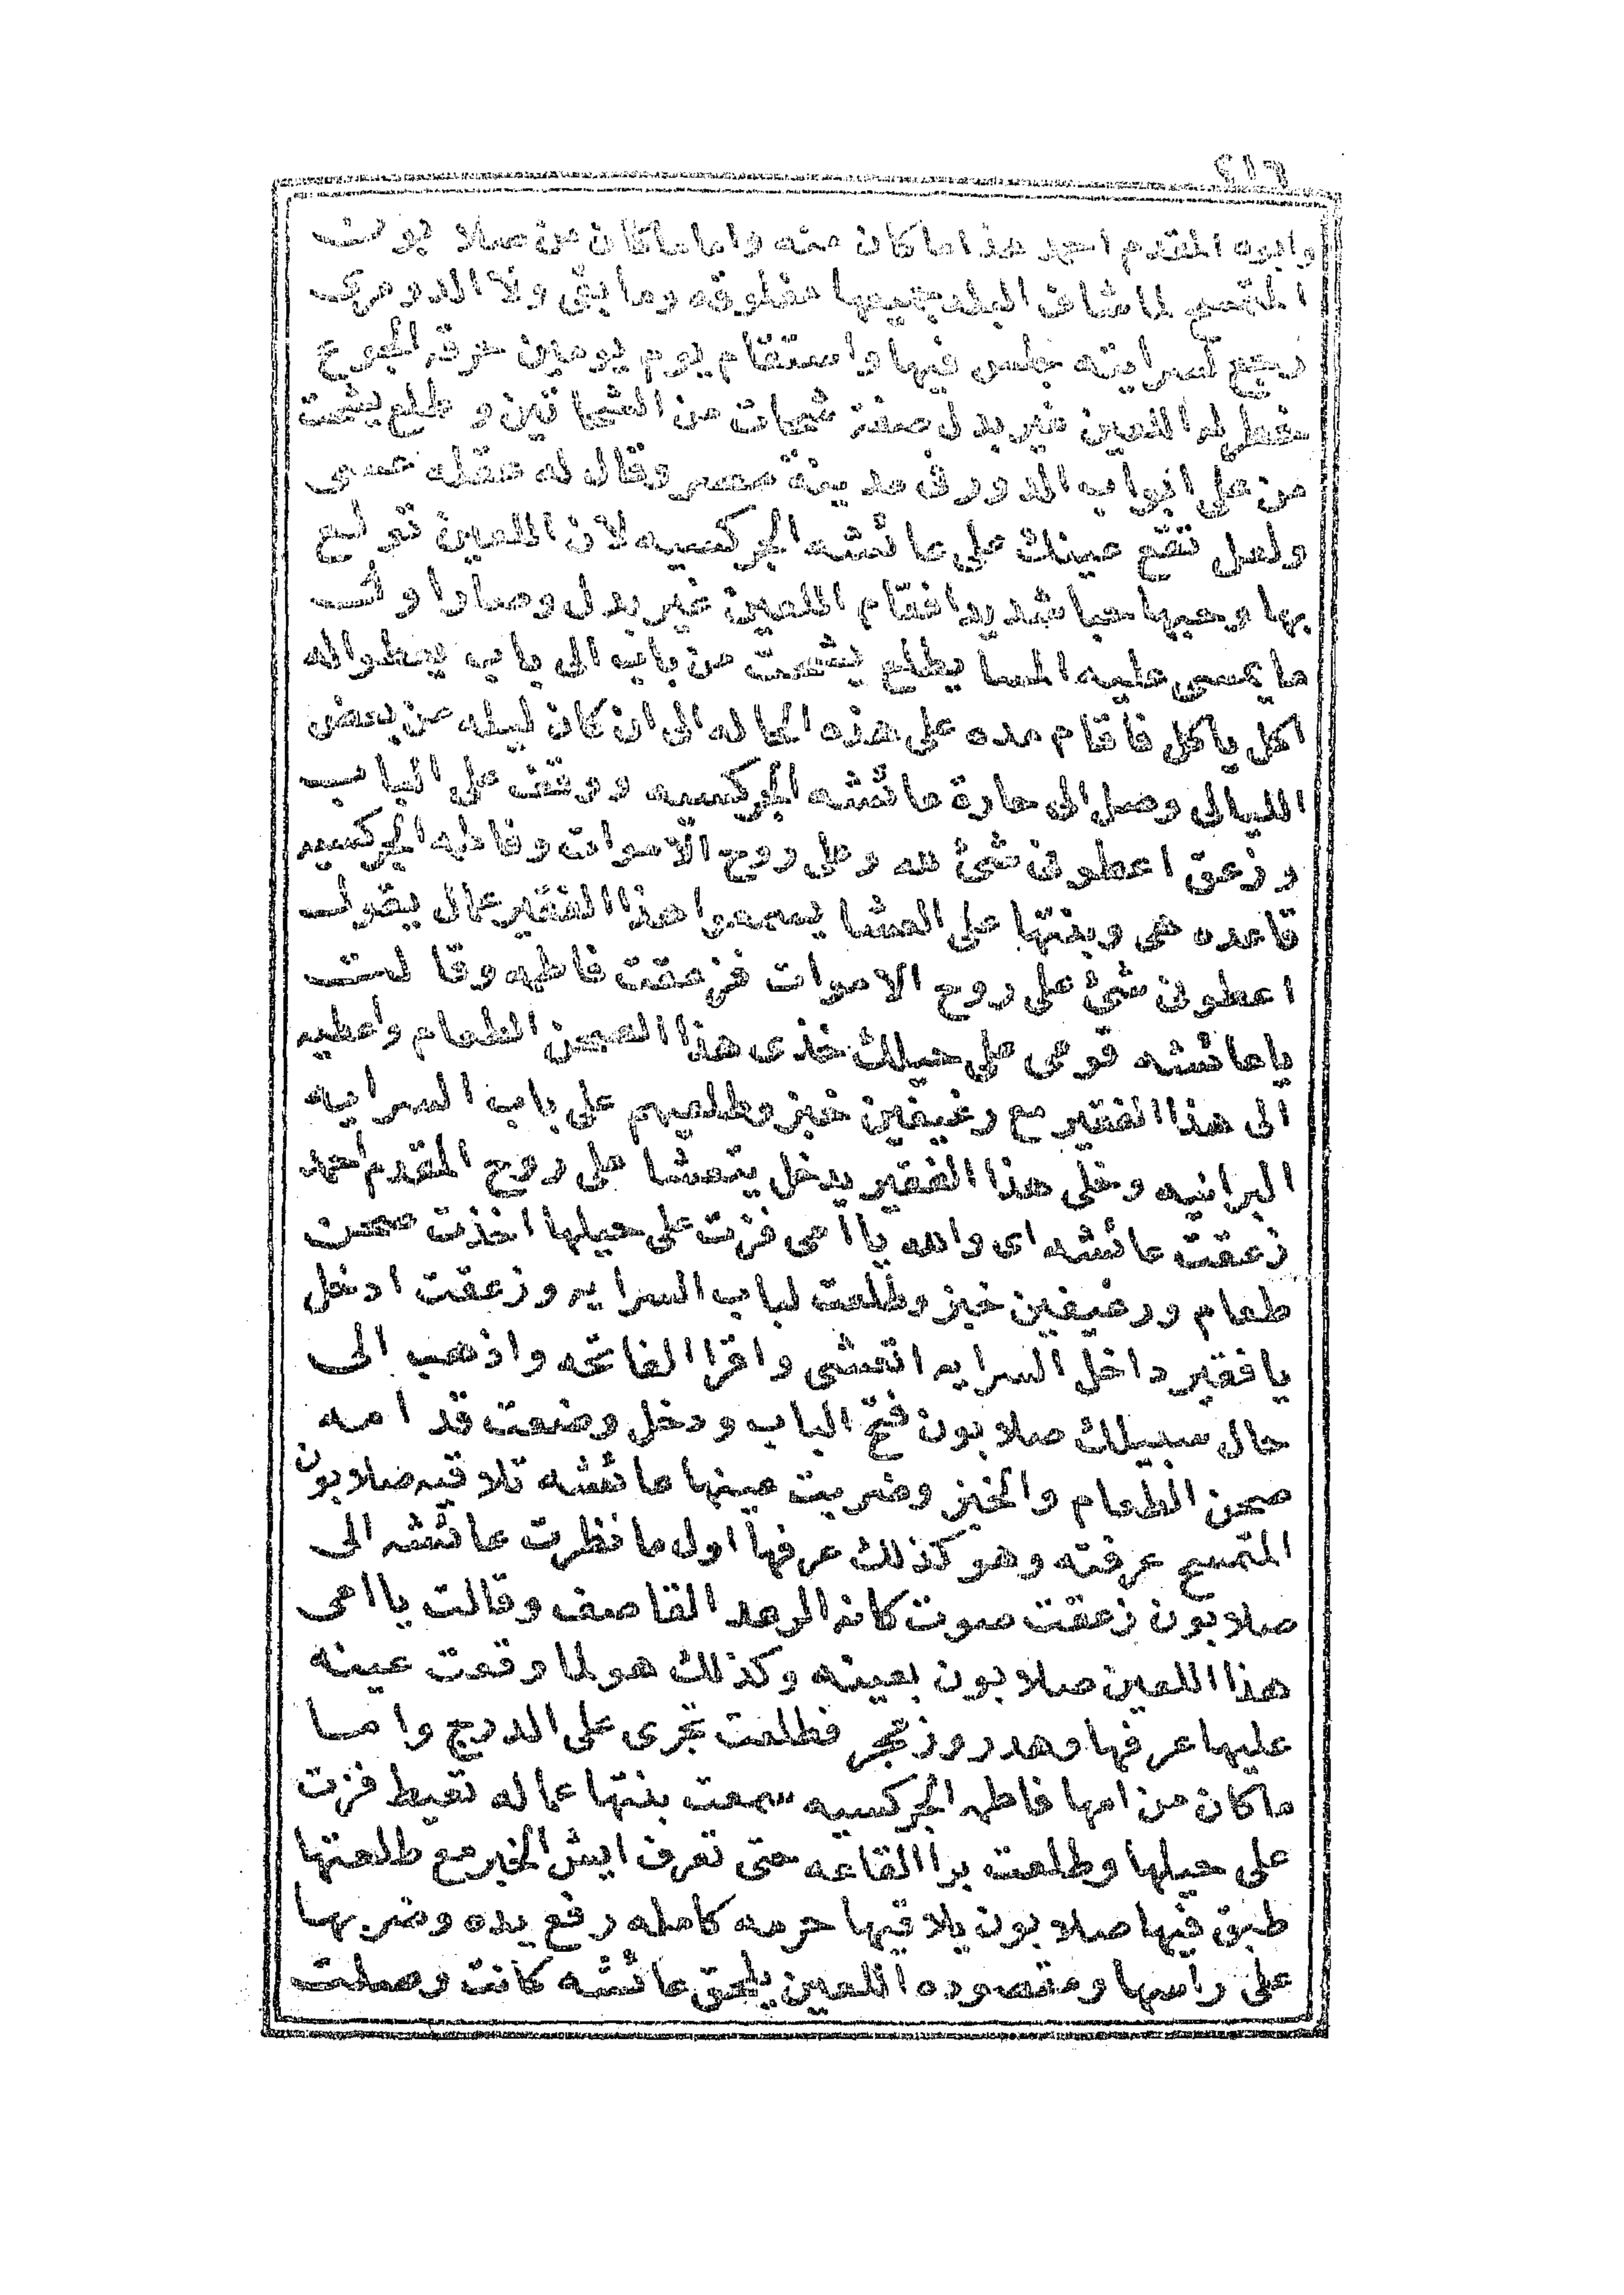 ٤١٦
وابوه المقدم احمد هذا ماكان منه واما ماكان من صلا بون
المتمسح لما شاف البلد جميعها مغلوقه وما بقى ولا الدومرى
رجع لسرايته جلس فيها واستقام يوم يومين حرقه الجوع
خطر له اللعين غير بدل صفة شحات من الشحاتين وطلع يشحت
من على ابواب الدور فى مدينة مصر وقال له عقله عسى
ولعل تقع عينك على عائشه الجركسيه لان اللعين تولع
بها وحبها حبا شديدا فقام اللعين غير بدل وصاروا وك
ما يمسى عليه المسا يطلع يشحت من باب الى باب يعطواله
اكل ياكل فاقام مده على هذه الحاله الى ان كان ليله من بعض
الليالى وصل الى حارة عائشه الجركسيه ووقف على الباب
وزعق اعطونى شئ لله وعلى روح الاموات وفاطمه الجركسيه
قاعده هى وبنتها على العشا يسمعوا هذا الفقير عمال يقول
اعطونى شئ على روح الاموات فزعقت فاطمه وقا لت
ياعائشه قومى على حيلك خذى هذا الصحن الطعام واعطيه
الى هذا الفقير مع رغيفين خبز وطلعيهم على باب السرايه
البرانيه وخلى هذا الفقير يدخل يتعشا على روح المقدم احمد
زعقت عائشه اى والله يا امى فزت على حيلها اخذت صحن
طعام ورغيفين خبز وطلعت لباب السرايه وزعقت ادخل
يا فقير داخل السرايه اتعشى واقرا الفاتحه واذهب الى
حال سبيلك صلا بون فتح الباب ودخل وضعت قدا مه
صحن الطعام والخبز وضربت عينها عائشه تلاقيه صلابون
المتمسح عرفته وهو كذلك عرفها اول ما نظرت عائشه الى
صلابون زعقت صوت كانه الرعد القاصف وقالت يا امى
هذا اللعين صلابون بعينه وكذلك هو لما وقعت عينه
عليها عرفها وهدر وزمجر فطلعت تجرى على الدرج واما
ماكان من امها فاطمه الجركسيه سمعت بنتها عماله تعيط فزت
على حيلها وطلعت برا القاعه حتى تعرف ايش الخبر مع طلعتها
طبق فيها صلابون يلاقيها حرمه كامله رفع يده وضربها
على راسها ومقصوده اللعين يلحق عائشه كانت وصلت